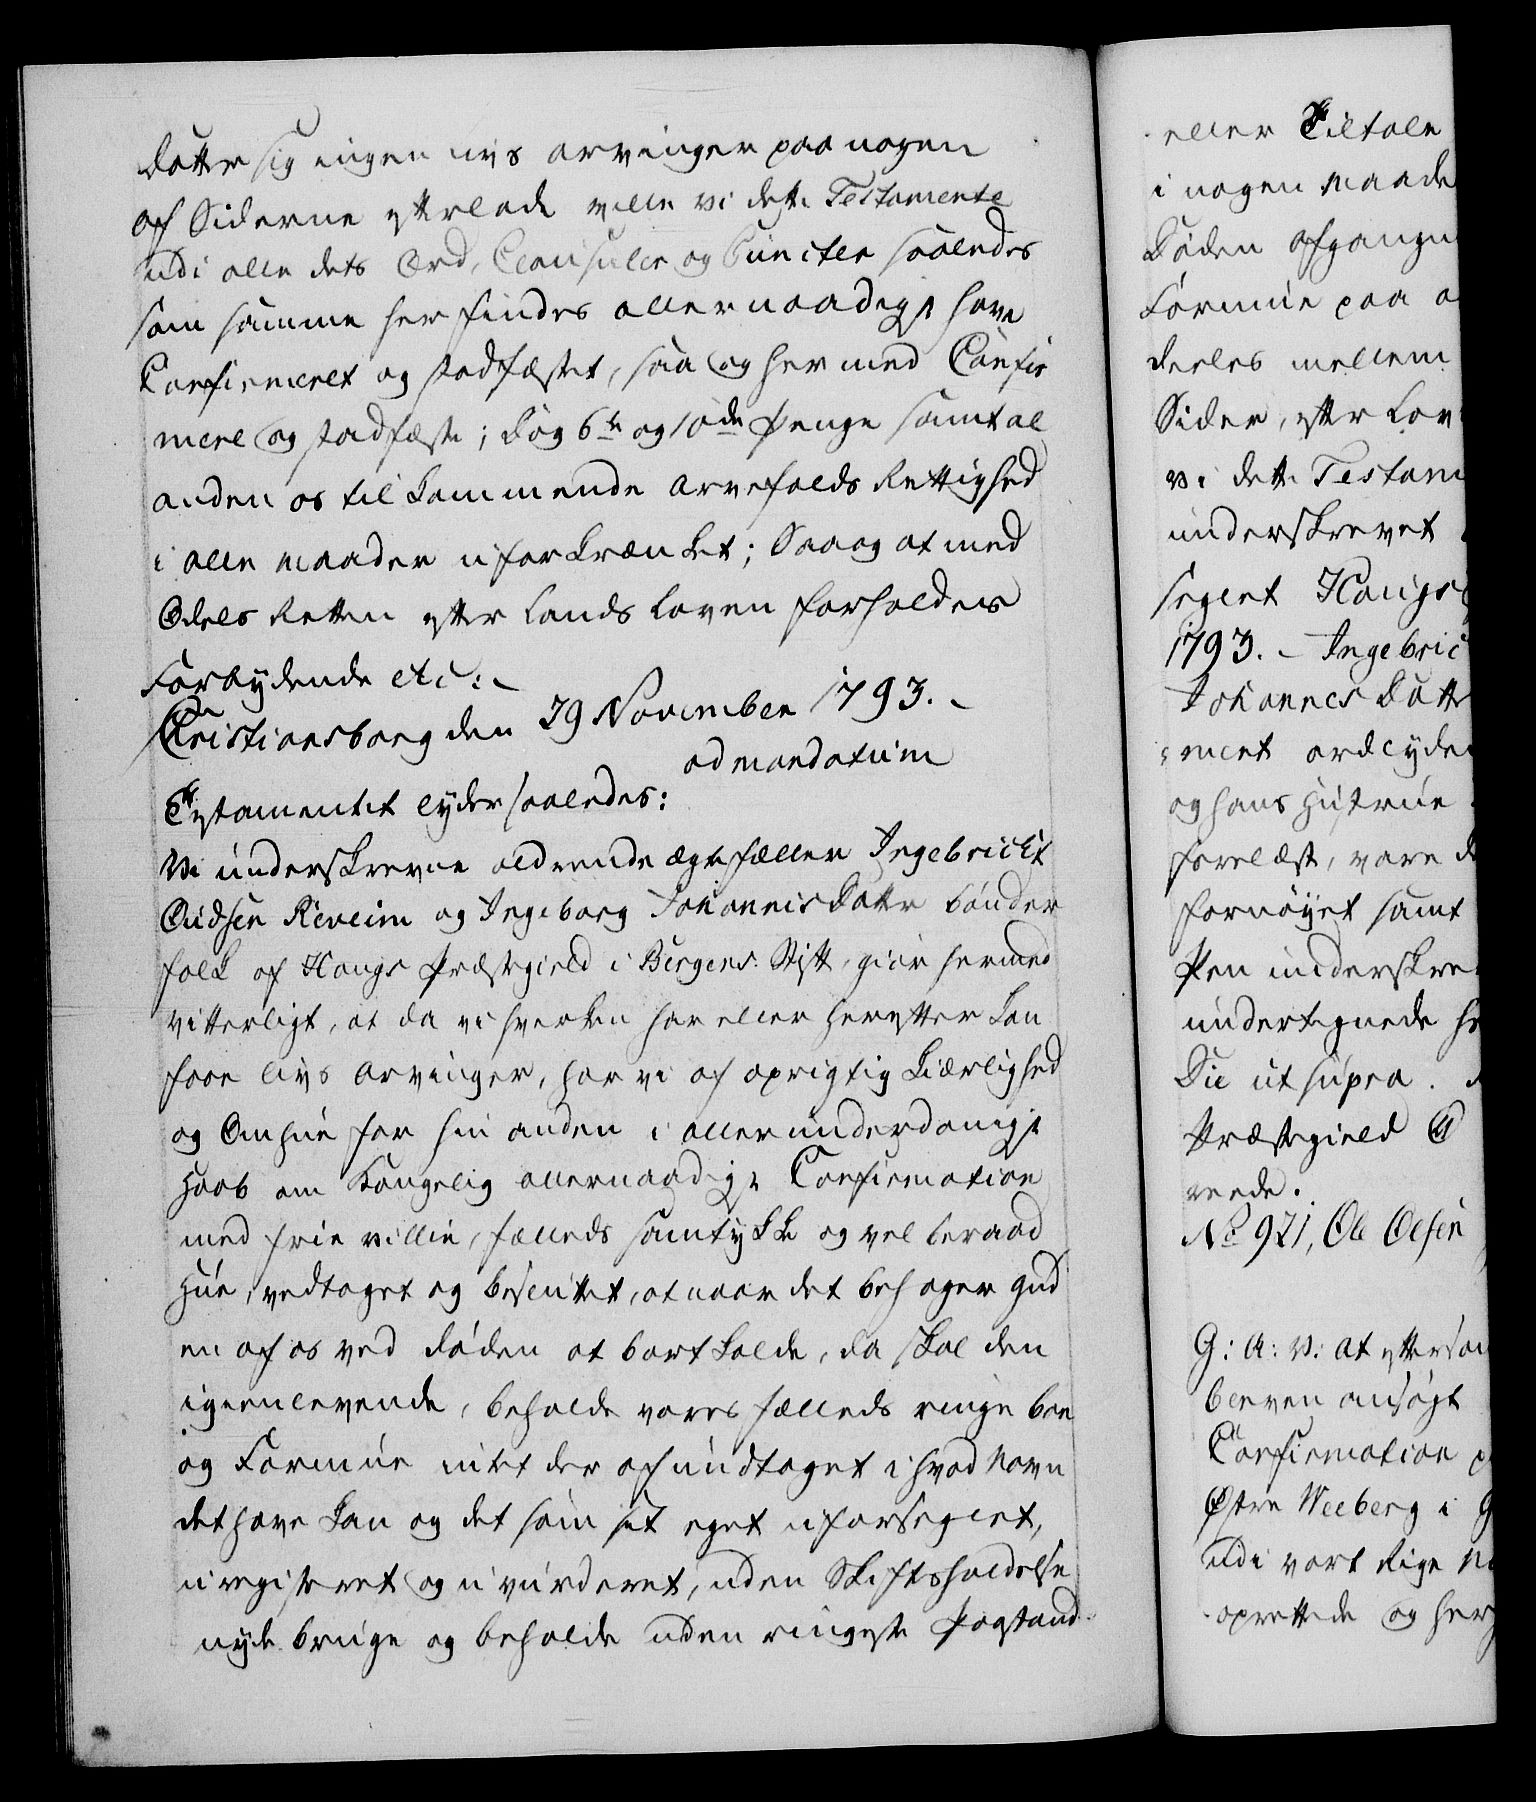 datter sig ingen livs arvinger paa nogen
af Siderne efterlade ville vi dette Testamente
udi alle dets Ord, Clausuler og Puncter saaledes
som samme her findes allernaadigst have
Confirmeret og stadfæstet, saa og hermed Confir
mere og stadfæste; dog 6te og 10de Penge samt al
anden os tilkommende Arvefalds Rettighed
i alle maader uforkrænket; Saa og at med
Odels Retten efter Lands Loven forholdes
Forbydende etc:-
Christiansborg den 29 November 1793.-
ad mandatum
Testamentet lyder saaledes:
Vi underskrevne aldrende ægtefæller Ingebricht
Oudsen Riveim og Ingeborg Johannisdatter bønder
folk af Hougs Præstegield i Bergens Stift, giør hermed
vitterligt, at da vi hverken har eller herefter kan
faae livs Arvinger, har vi af oprigtig kiærlighed
og Omhue for hin anden i allerunderdanigst
Haab om Kongelig allernaadigst Confirmation
med frie villie, fælleds samtykke og vel beraad
Hue, vedtaget og besluttet, at naar det behager Gud
en af os ved døden at bortkalde, da skal den
igienlevende, beholde vores fælleds ringe boe
og Formue intet der af undtaget i hvad Navn
det have kan og det som sit eget uforseglet,
uregistreret og uvurderet, uden Skiftsholdelse
nyde bruge og beholde uden ringeste Paastand
eller Tiltale
i nogen Maade
Døden afgangne
Formue paa
deeles mellem
Sider, efter Lov
vi dette Testam
underskrevet
seglet Hougs
1793. - Ingebric
Johannes datter
ment ordlyden
og hans Hustrue
forelæst, vare
fornøyet samt
Pen underskre
undertegnede
Die ut supra.
Præstegield
reede.
No 921, Ole Olsen
G: A: V: At eftersom
bleven ansøgt
Confirmation
Østre Weeberg i
udi vort Rige
oprettede og her